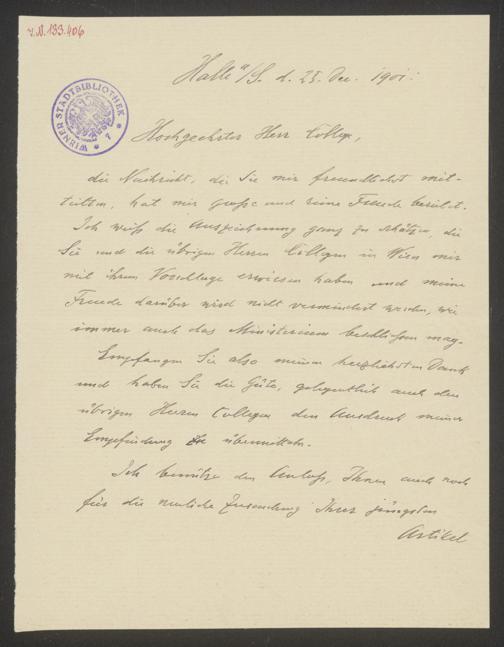 J.N. 133.406
WIENER STADTBIBLIOTHEK
Halle a/S. d. 25. Dec. 1901.
Hochgeehrter Herr College,
die Nachricht, die Sie mir freundlichst mit-
teilten, hat mir große und reine Freude bereitet.
Ich weiß die Auszeichnung ganz zu schätzen, die
Sie und die übrigen Herren Collegen in Wien mir
mit ihrem Vorschlage erwiesen haben und meine
Freude darüber wird nicht vermindert werden, wie
immer auch das Ministerium beschließen mag.
Empfangen Sie also meinen herzlichsten Dank
und haben Sie die Güte, gelegentlich auch den
übrigen Herren Collegen den Ausdruck meiner
Empfindung zu übermitteln.
Ich benütze den Anlaß, Ihnen auch noch
für die neuliche Zusendung Ihrer jüngsten
Artikel